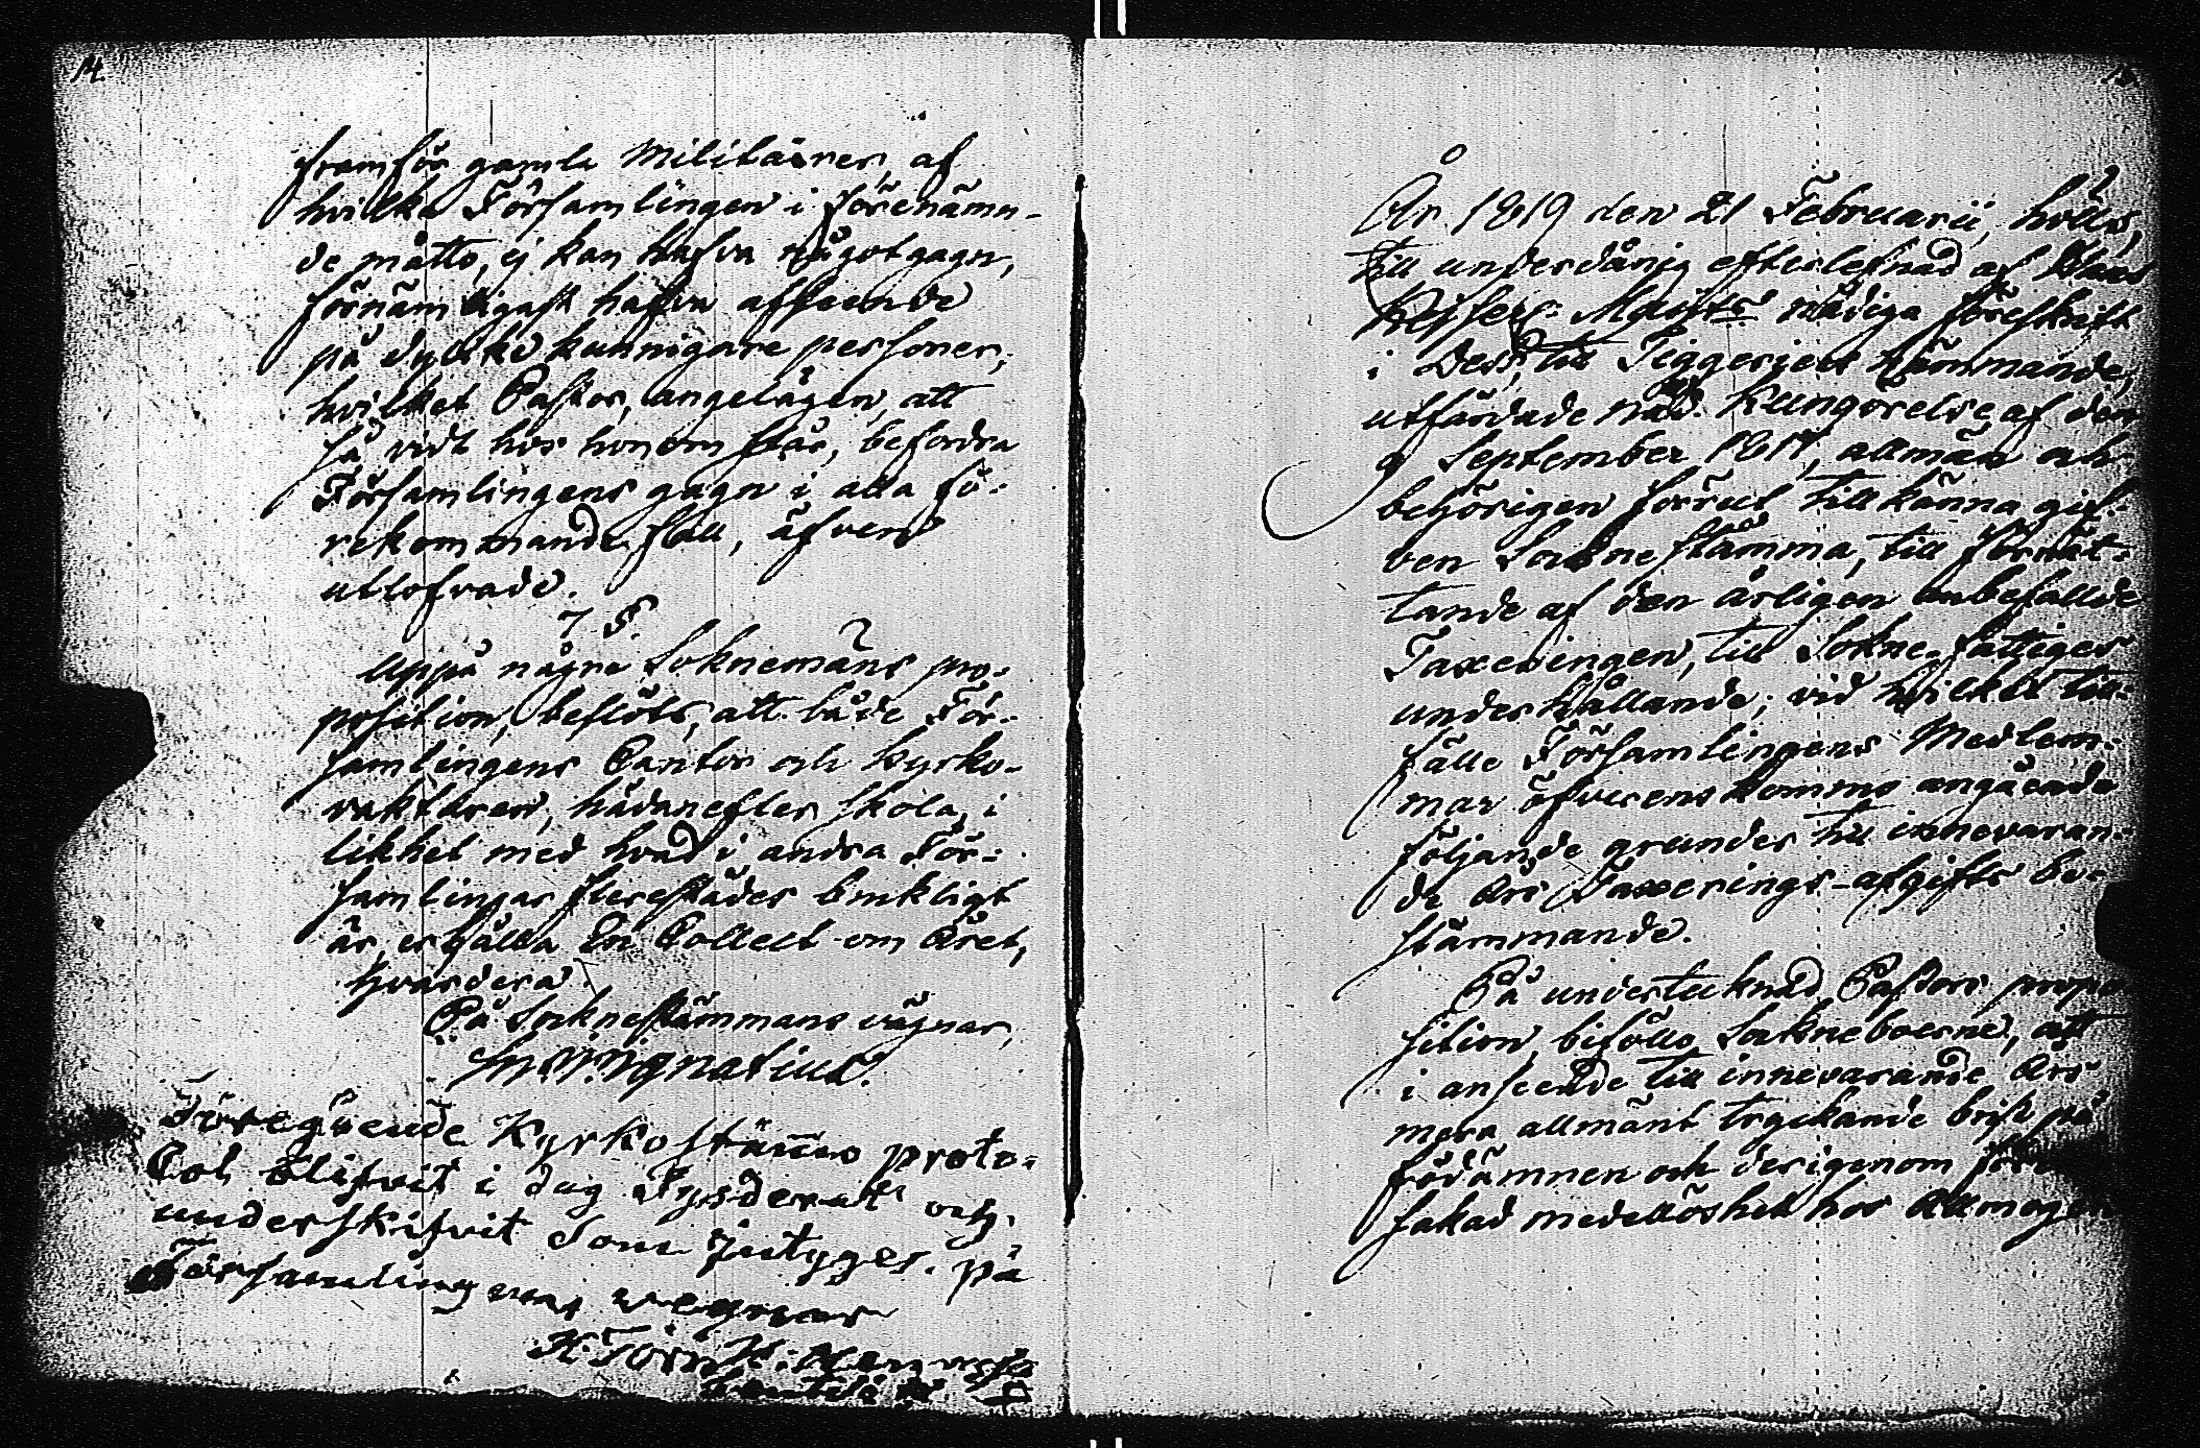 14.
framför gamla Militairer, af
hvilka Församlingen i förenämn-
de måtto, ej kan hafva något gagn,
förnämligast hafva afseende
på dylike kunnigare personer;
hvilket Pastor, angelägen, att
så vidt hos honom står, befordra
Församlingens gagn i alla fö-
rekommande fall, äfven
utlofvade.
7 §.
Uppå någre Soknemäns pro-
position, beslöts, att både För-
samlingens Cantor och Kyrko-
vaktaren, hädanefter skola, i
likhet med hvad i andra För-
samlingar flerestädes brukligt
är, erhålla En Collect om Året,
hvardera.
På Sokne stämmans vägnar,
Ignatius.
Föregående Kyrko stämo proto-
Col blifvit i dag Jusderatt och
underskrifvit Som intyges. på
Församlingens wegnar
År 1819 den 21 Februarii, hölls,
till underdånig efterlefnad af Hans
Kejserl. Maijts nådiga föreskrift
i Dess, till Tiggeriets hämmande,
utfärdade nåd. Kungörelse, af den
9 September 1817, allmän och
behörigen förrut tillkänna gif-
ven Sokne stämma, till förrät-
tande af den årligen anbefallde
Taxeringen, till Sokne-fattiges
underhållande; vid hvilket till-
fälle Församlingens Medlem-
mar öfverens kommo angående
följande grunder till innevaran-
de Års Taxerings-afgifts be-
stämmande.
På undertecknad Pastors propo-
sition, biföllo Sokneboerne, att
i anseende till innevarande Års
mera allmänt tryckande brist på
födämnen och derigenom
sakad medellöshet hos Allmogen